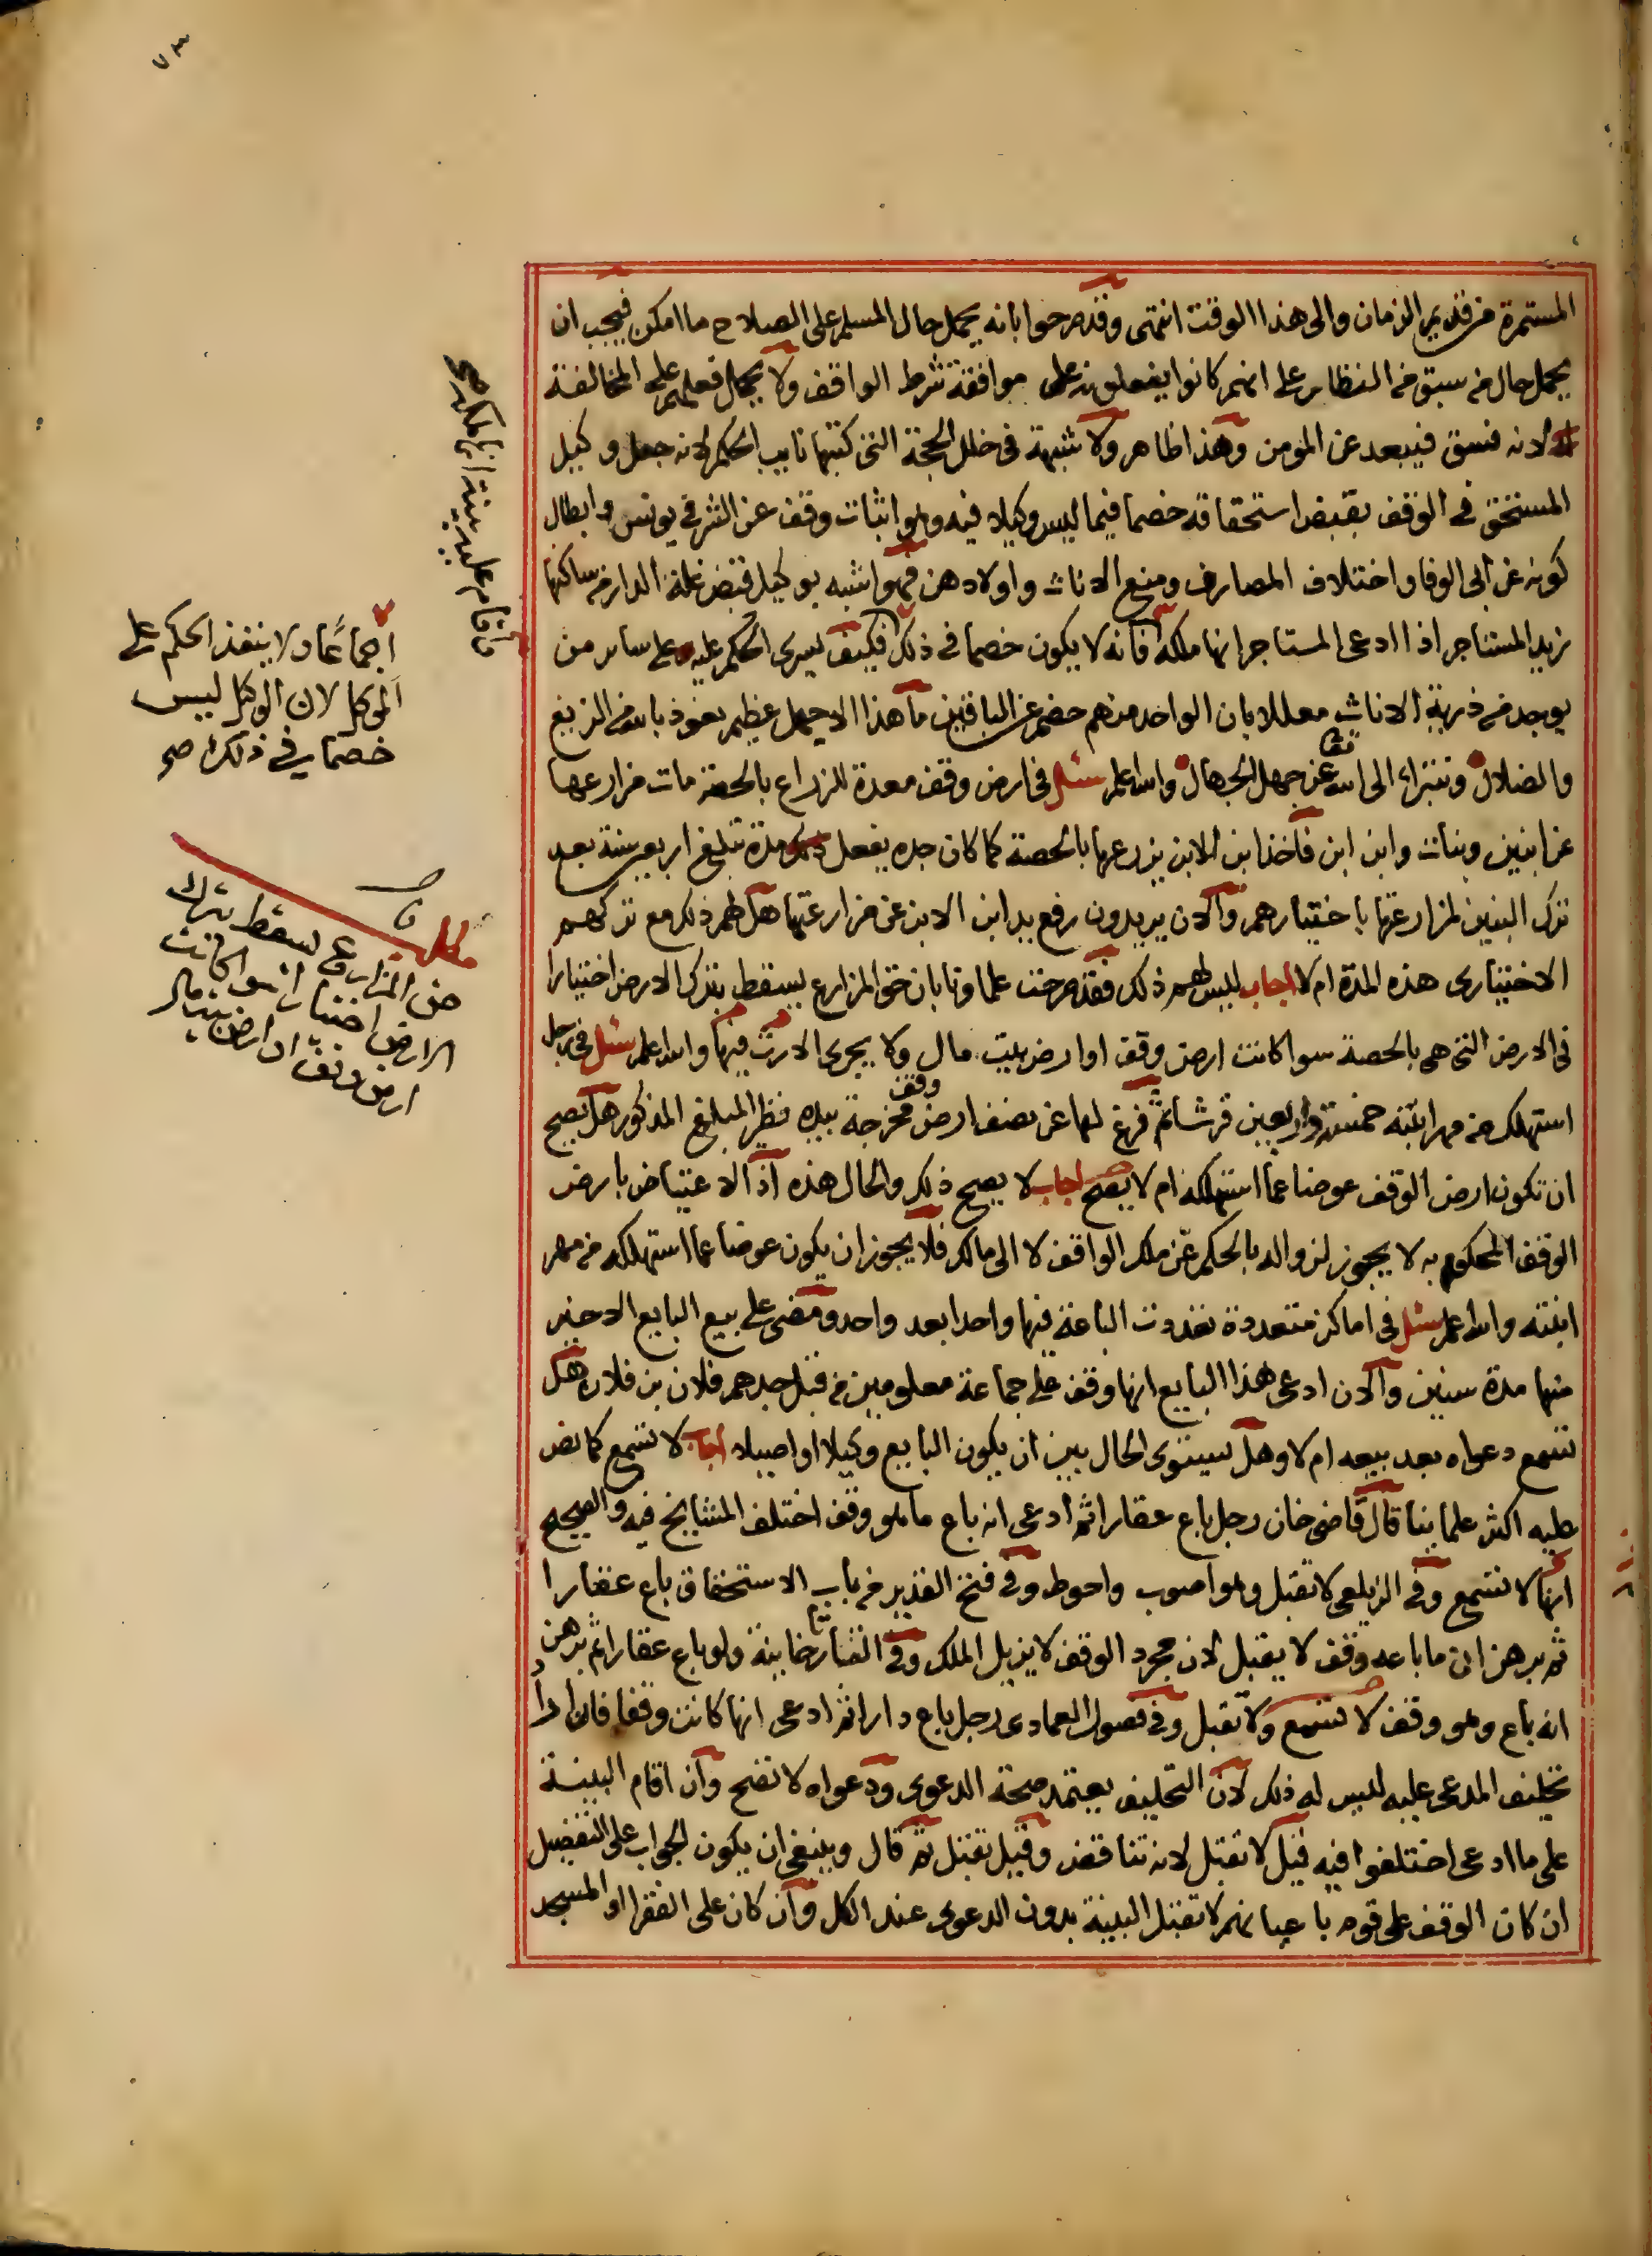 ٧٣
المستمرة من قديم الزمان والى هذا الوقت انتهى وقد صرحوا بانه يحمل حال المسلم على الصلاح ما امكن فيجب ان
يحمل حال من سبق من النظار على انهم كانوا يفعلونه على موافقة شرط الواقف ولا يحمل فعلهم على المخالفة
لانه فسق فيبعد عن المومن وهذا ظاهر ولا شبهة فى خلل الحجة التى كتبها نايب الحكم لانه جعل وكيل
المستحق فى الوقف بقبض استحقاقه خصما فيما ليس وكيلا فيه وهو اثبات وقف عن الشرفى يونس وابطال
كونه عن ابى الوفا واختلاف المصارف ومنع الاناث واولادهن فهو اشبه بوكيل قبض غلة الدار من ساكنها
زيد المستاجر اذا ادعى المستاجر انها ملكه فانه لا يكون خصما فى ذلك فكيف يسرى الحكم عليه على ساير من
يوجد من ذرية الاناث معللا بان الواحد منهم خصم عن الباقين ما هذا الا جهل عظيم نعوذ بالله من الزيغ
والضلال ونتبراء الى الله تعا عن جهل الجهال والله اعلم سئل فى ارض وقف معدة للزراع بالحصة مات مزارعها
عن ابنين وبنات وابن ابن فاخذ ابن الابن يزرعها بالحصة كما كان جده يفعل ذلك مدة تبلغ اربعين سنة بعد
ترك البنين لمزارعتها باختيارهم والان يريدون رفع يد ابن الابن عن مزارعتها هل لهم ذلك مع تركهم
الاختيارى هذه المدة ام لا اجاب ليس لهم ذلك فقد صرحت علماونا بان حق المزارع يسقط بترك الارض اختيارا
فى الارض التى هى بالحصة سوا كانت ارض وقف او ارض بيت مال ولا يجرى الارث فيها والله اعلم سئل فى رجل
استهلك من مهر ابنته خمسة واربعين قرشا ثم فرغ لها عن نصف ارض وقف مخرجة بيده نظير المبلغ المذكور هل يصح
ان تكون ارض الوقف عوضا عما استهلكه ام لا يصح اجاب لا يصح ذلك والحال هذه اذ الاعتياض بارض
الوقف المحكوم به لا يجوز لزواله بالحكم عن ملك الواقف لا الى مالك فلا يجوز ان يكون عوضا عما استهلكه من مهر
ابنته والله اعلم سئل فى اماكن متعددة تعددت الباعة فيها واحدا بعد واحد ومضى على بيع البايع الاخير
منها مدة سنين والان ادعى هذا البايع انها وقف على جماعة معلومين من قبل جدهم فلان بن فلان هل
تسمع دعواه بعد بيعه ام لا وهل يستوى الحال بين ان يكون البايع وكيلا او اصيلا اجاب لا تسمع كما نص
عليه اكثر علماينا قال قاضى خان رجل باع عقارا ثم ادعى انه باع ما هو وقف اختلف المشايخ فيه والصحيح
انها لا تسمع وفى الزيلعى لا تقبل وهو اصوب واحوط وفى فتح القدير من باب الاستحقاق باع عقارا
ثم برهن ان ما باعه وقف لا يقبل لان مجرد الوقف لا يزيل الملك وفى التتارخانية ولو باع عقارا ثم برهن
انه باع وهو وقف لا تسمع ولا تقبل وفى فصول العمادى رجل باع دارا ثم ادعى انها كانت وقفا فان اراد
تحليف المدعى عليه ليس له ذلك لان التحليف يعتمد صحة الدعوى ودعواه لا تصح وان اقام البينة
على ما ادعى اختلفوا فيه قيل لا تقبل لانه تناقض وقيل تقبل ثم قال وينبغى ان يكون الجواب على التفصيل
ان كان الوقف على قوم باعيانهم لا تقبل البينة بدون الدعوى عند الكل وان كان على الفقرا او المسجد
واقام عليه بينة انها ملكه صح
اجماعا ولا ينفذ الحكم على
الموكل لان الوكيل ليس
خصما فى ذلك صح
مطلب
حق المزارع يسقط بترك
الارض اختيارا سوا كانت
ارض وقف او ارض بيت مال